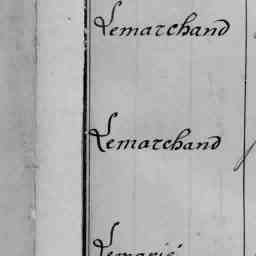 Lemarchand
Lemarchand
Lemarié